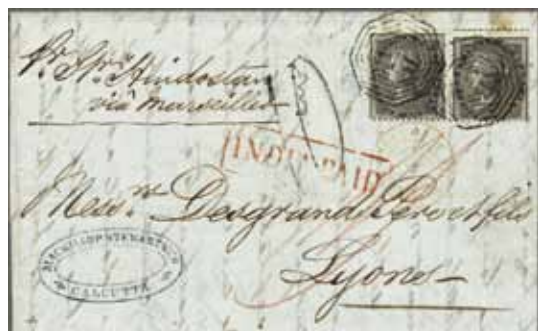 Pr. Str. Hindostan
via Marseilles
INDIA PAID
Messrs. Desgrand Pere et fils
Lyons
CALCUTTA